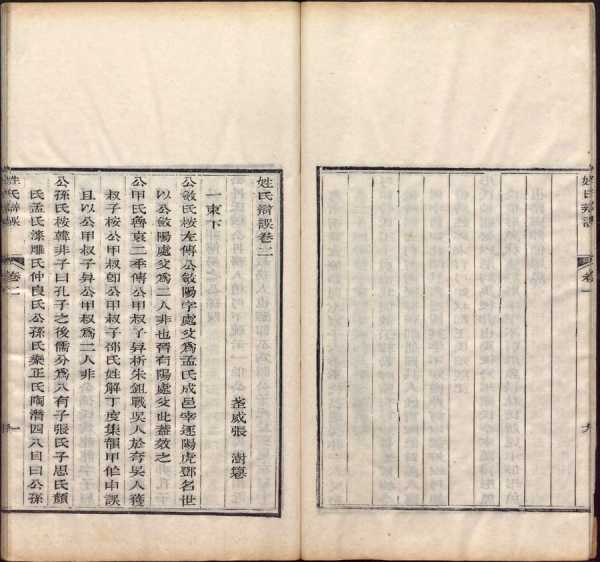 姓氏辯誤
卷一
九
姓氏辯誤卷二
一東下
荃威張澍纂
公斂氏桉左傳公斂陽字處父爲孟氏成邑宰逐陽虎鄧名世
以公斂陽處父爲二人非也晉有陽處父此葢效之
公甲氏魯哀二季傳公甲叔子昇析朱鉏戰吳人於夸吳人獲
叔子桉公甲叔卽公甲叔子邵氏姓解丁度集韻甲作申誤
且以公甲叔子昇公甲叔爲二人非
公孫氏桉韓非子曰孔子之後儒分爲八有子張氏子思氏顏
氏孟氏漆雕氏仲良氏公孫氏樂正氏陶潛四八目曰公孫
姓氏辯誤
卷二
一